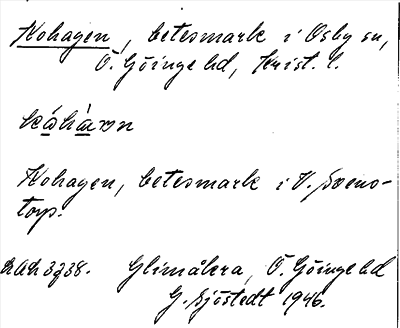 Kohagen, betesmark i Osby sn,
Ö. Göinge hd, Krist. l.
Kohagen, betesmark i V. Svens-
torp.
Glimåkra, Ö. Göinge hd
G. Sjöstedt 1946.